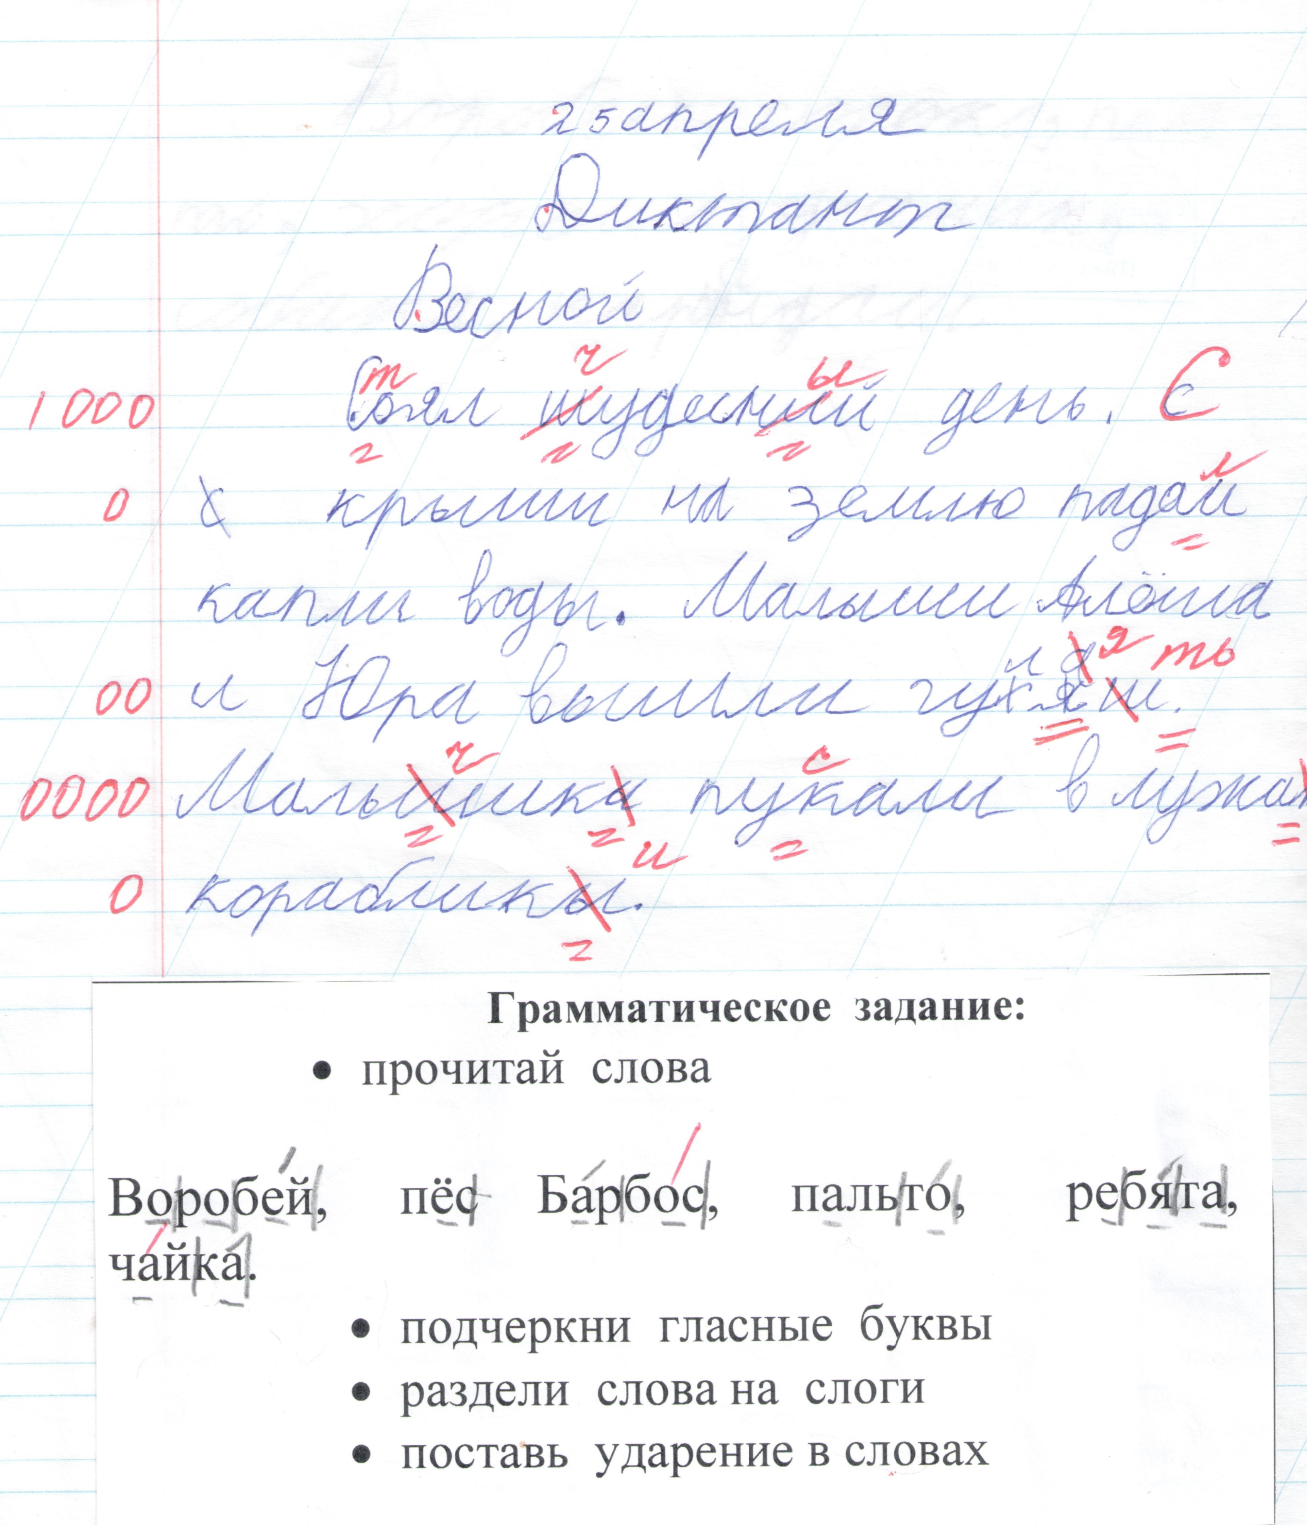 25 апреля
Диктант
Весной
1000 Соял шудесний день. С
0 крыши на землю падаи
капли воды. Малыши Алёша
00 и Юра вышли гуляш.
0000 Мальйшика пукали в лужах
0 корабликы.
Грамматическое задание:
• прочитай слова
Воробей, пёс Барбос, пальто, ребята,
чайка.
• подчеркни гласные буквы
• раздели слова на слоги
• поставь ударение в словах